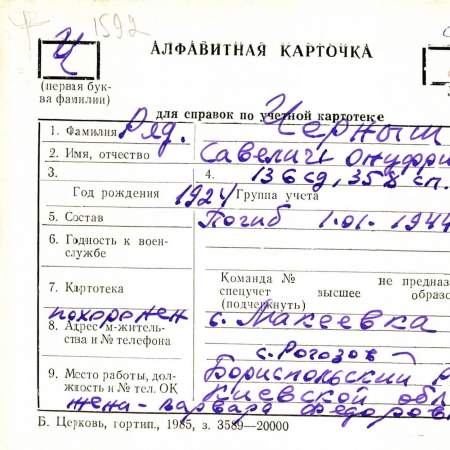 1592
Ч
АЛФАВИТНАЯ КАРТОЧКА
(первая бук-
ва фамилии)
для справок по учетной картотеке
1. Фамилия Ряд. Черныш
2. Имя, отчество Савелич Онуфри
3. 4. 136 сд, 358 сп.
Год рождения 1924 Группа учета
5. Состав Погиб 1.01.1944
6. Годность к воен-
службе
Команда № не предназ
7. Картотека спецучет высшее образо
(подчеркнуть)
похоронен с. Макеевка
8. Адрес м-житель-
ства и № телефона
с. Рогозов
9. Место работы, дол-
жность и № тел. ОК
Бориспольский р
Киевской обл
жена - Варвара Федоров
Б. Церковь, гортип., 1985, з. 3589—20000